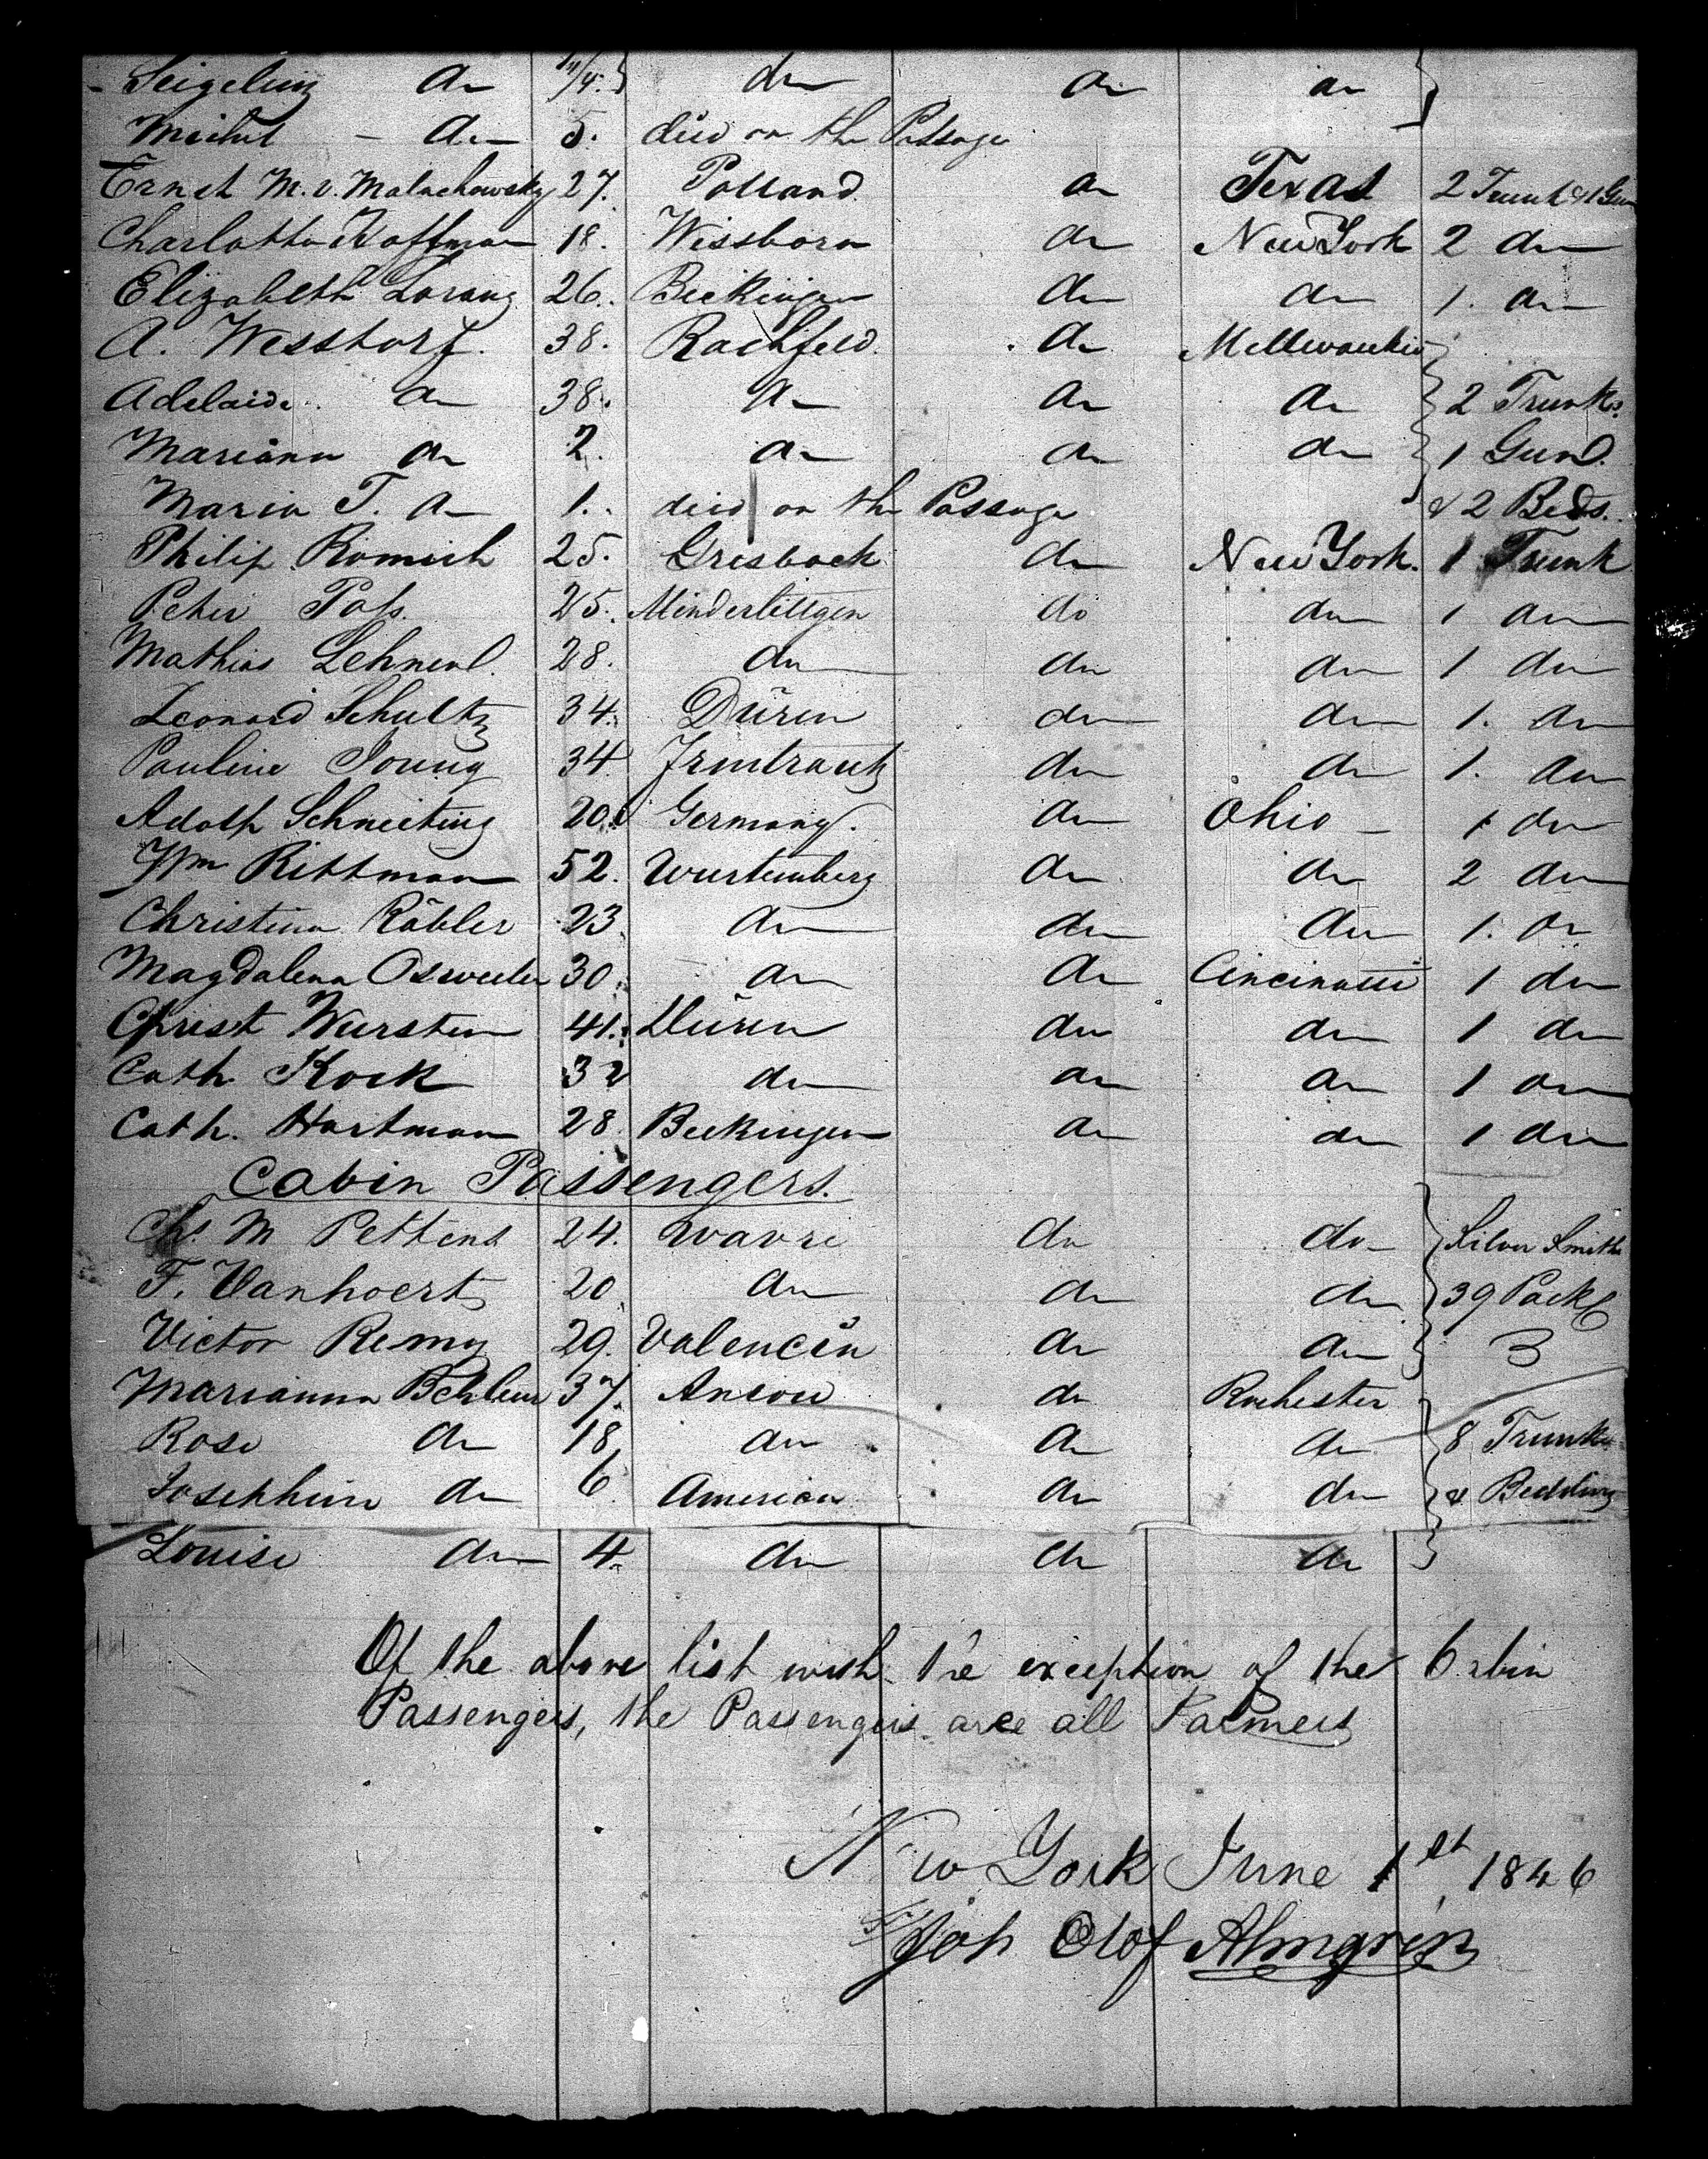 Seigeling do do do do
Michel - do 5. died on the Passage
Ernst M. v. Malachowsky 27. Polland do Texas 2 Trunk & 1 Gun
Charlotta Hoffman 18. Wissborn do New York 2 do
Elizabeth Lorang 26. Beckingen do do 1. do
A. Wesstorf. 38. Rachfeld. do Mellwaukie
Adelaide. do 38. do do do 2 Trunks.
Mariana do 2. do do do 1 Gun.
Maria T. do 1. died on the Passage & 2 Beds.
Philip Romich 25. Gresbach do New York. 1 Trunk
Peter Pass. 25. Minderlittgen do do 1 do
Mathias 28. do do do 1 do
Leonard Schultz 34. Düren do do 1. do
Pauline Joung 34. Irmtrautz do do 1. do
Adolf Schneiting 20. Germany. do Ohio - 1 do
Wm Rittman 52. Wurtemberg do do 2 do
Christina Räbler 23. do do do 1. do
Magdalena Osweiler 30. do do Cincinatti 1 do
Christ Wurster 41. Düren do do 1 do
Cath. Kock 32 do do do 1 do
Cath. Hartman 28. Beckingen do do 1 do
Cabin Passengers.
Chs. M Pettens 24. Wavre do do Silver Smith
F. Vanhoert 20 do do do 39 Packs
Victor Remy 29. Valencin do do 3
Marianna 37. do Rochester
Rose do 18. do do do 8 Trunks
Josephine do 6. America do do & Bedding
Louise do 4. do do do
Of the above list with the exception of the Cabin
Passengers, the Passengers are all Farmers
New York June 1st 1846
Joh Olof Almgren